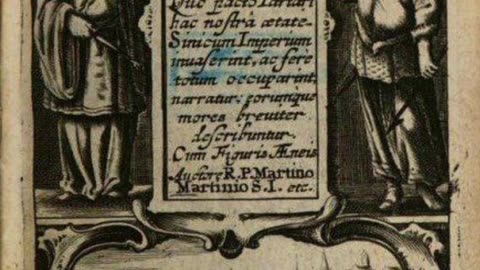 Quo pacto Tartari
hac nostrâ ætate
Sinicum Imperium
invaserint, ac fere
totum occuparint,
narratur; eorumque
mores breviter
describuntur.
Cum Figuris Æneis
Auctore R.P. Martino
Martinio S.I. etc.